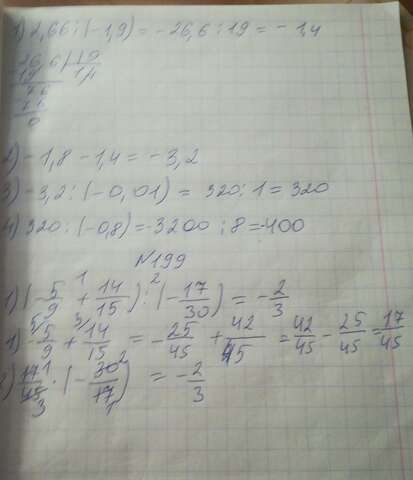 1) 2,66 : (-1,9) = -26,6 : 19 = -1,4
26,6 | 19
19 | 1,4
76
76
0
2) -1,8 - 1,4 = -3,2
3) -3,2 : (-0,01) = 320 : 1 = 320
4) 320 : (-0,8) = -3200 : 8 = -400
№199
1) (-5/9 + 14/15) : (-17/30) = -2/3
1) -5/9 + 14/15 = -25/45 + 42/45 = 42/45 - 25/45 = 17/45
2) 17/45 · (-30/17) = -2/3